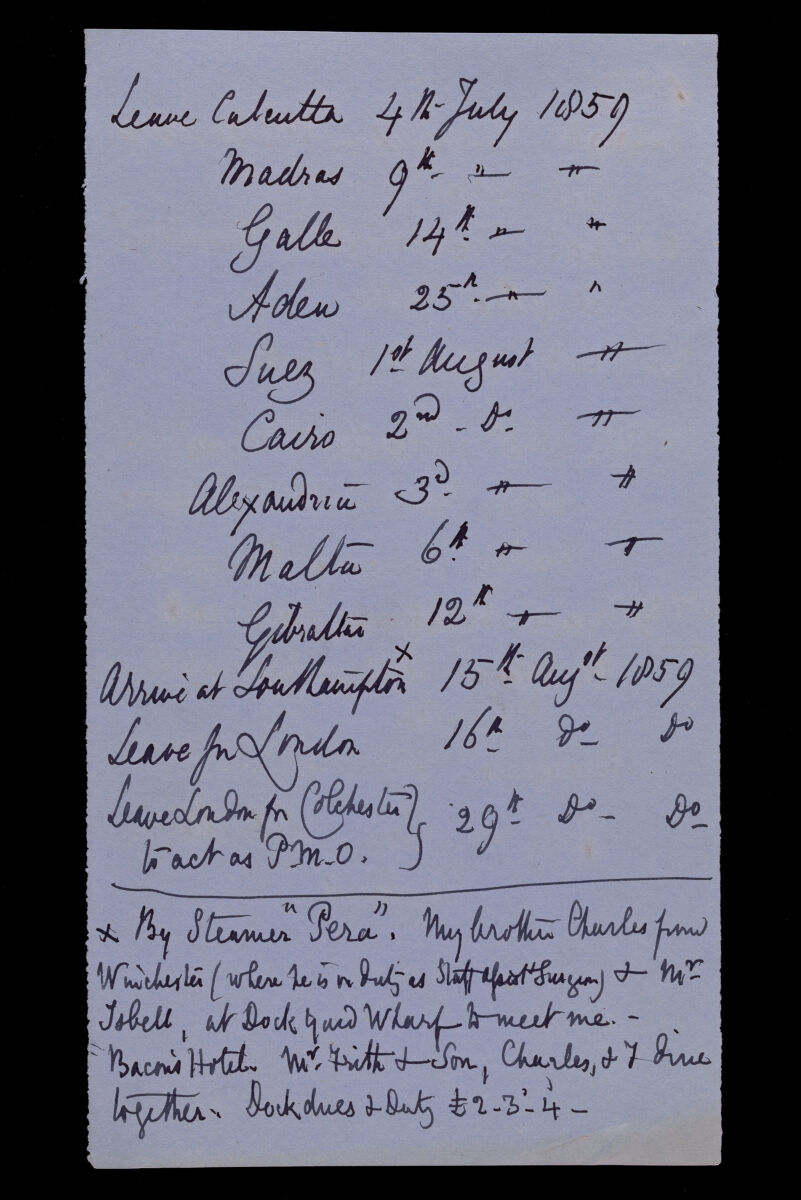 Leave Calcutta 4th July 1859
Madras 9th " "
Galle 14th " "
Aden 25th " "
Suez 1st August "
Cairo 2nd - Do "
Alexandria 3d " "
Malta 6th " "
Gibraltar 12th " "
Arrive at Southampton x 15th Augst 1859
Leave for London 16th do Do
Leave London for Colchester } 29th Do - Do
to act as P.M.O.
x By Steamer "Pera". My brother Charles from
Winchester (where he is on duty as Staff Assist Surgeon) & Mr
Isbell, at Dock Yard Wharf to meet me. -
Bacon's Hotel. Mr. Frith & Son, Charles, & I dine
together. Dock dues & Duty £2-3-4-